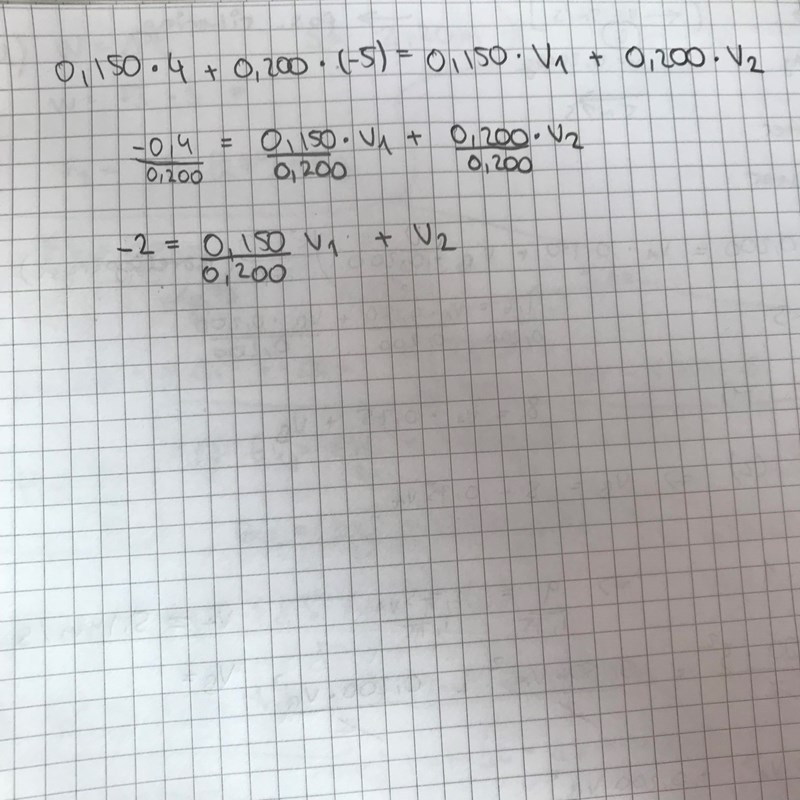 0,150 · 4 + 0,200 · (-5) = 0,150 · V₁ + 0,200 · V₂
-0,4/0,200 = 0,150 · V₁/0,200 + 0,200 · V₂/0,200
-2 = 0,150/0,200 V₁ + V₂